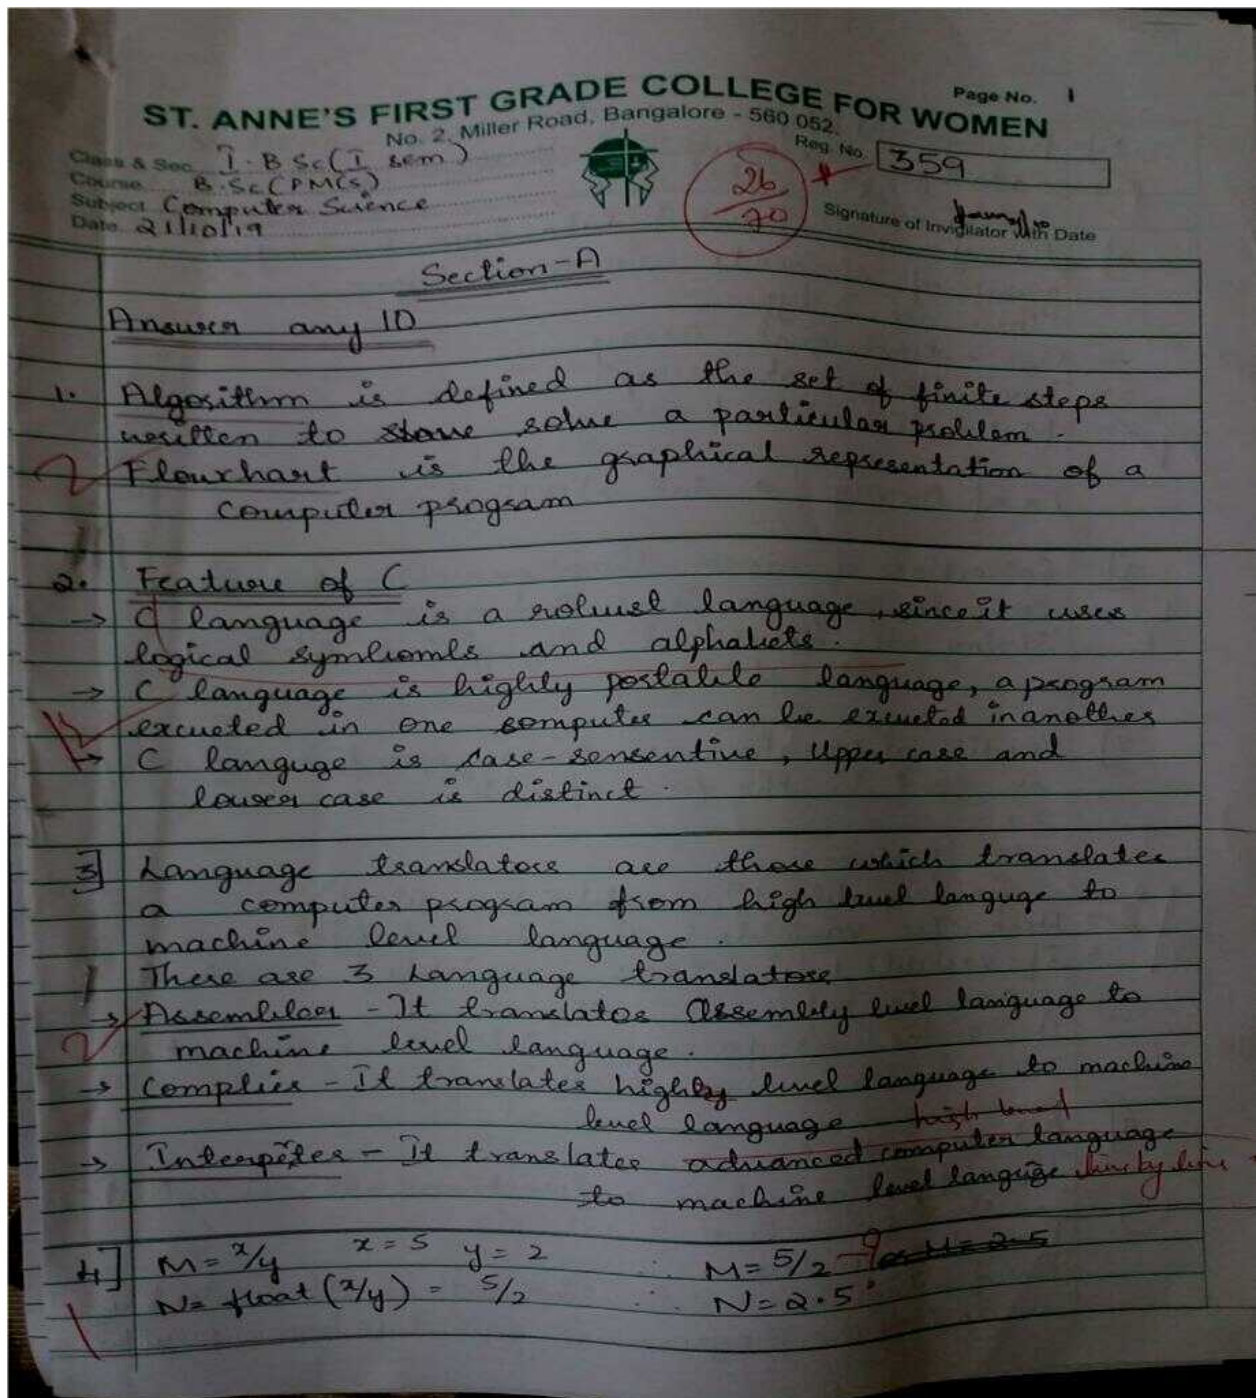 Page No. 1
ST. ANNE'S FIRST GRADE COLLEGE FOR WOMEN
No. 2, Miller Road, Bangalore - 560 052.
Class & Sec. I. B Sc (I sem)
Reg. No. 359
Course B.Sc (PMCs)
26/70
Subject Computer Science
Signature of Invigilator with Date
Date 21/10/19
Section-A
Answer any 10
1. Algorithm is defined as the set of finite steps
written to solve a particular problem.
2 Flowchart is the graphical representation of a
computer program
2. Feature of C
→ C language is a robust language, since it uses
logical symbomls and alphabets.
→ C language is highly portable language, a program
excueted in one computer can be excueted in another
→ C languge is case-sensentive, Upper case and
lower case is distinct.
3] Language translators are those which translates
a computer program from high level languge to
machine level language.
There are 3 Language translators
→ Assembler - It translates Assembly level language to
2 machine level language.
→ Complier - It translates highly level language to machine
level language high level
→ Interpiter - It translates advanced computer language
to machine level languge line by line
4] M = x/y x = 5 y = 2 ∴ M = 5/2
N = float (x/y) = 5/2 ∴ N = 2.5